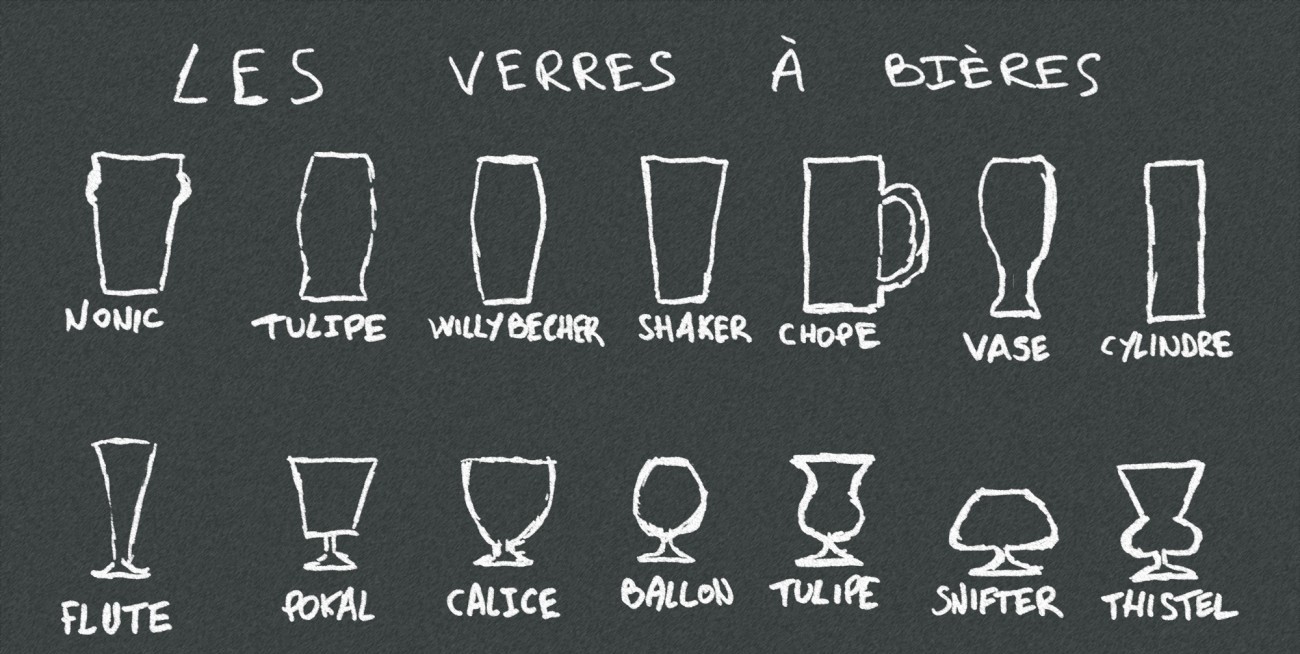 LES VERRES À BIÈRES
NONIC TULIPE WILLYBECHER SHAKER CHOPE VASE CYLINDRE
FLUTE POKAL CALICE BALLON TULIPE SNIFTER THISTEL